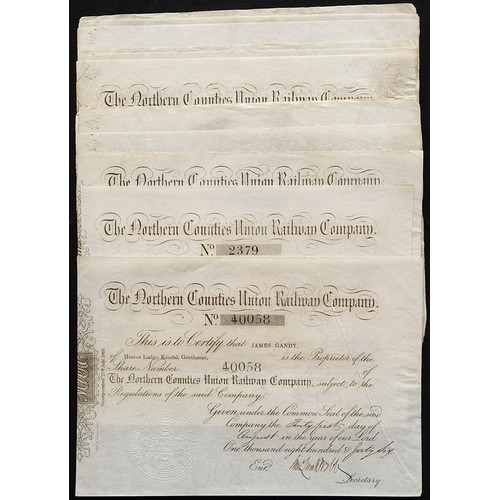 The Northern Counties Union Railway Company
The Northern Counties Union Railway Company
The Northern Counties Union Railway Company.
No 2379
The Northern Counties Union Railway Company.
No 40058
This is to Certify that JAMES GANDY,
of Heaves Lodge, Kendal, Gentleman, is the Proprietor of the
Share Number 40058 of
The Northern Counties Union Railway Company, subject to the
Regulations of the said Company.
Given under the Common Seal of the said
Company the Thirty first day of
August in the year of our Lord
One thousand eight hundred & forty six
Entd.
Secretary.